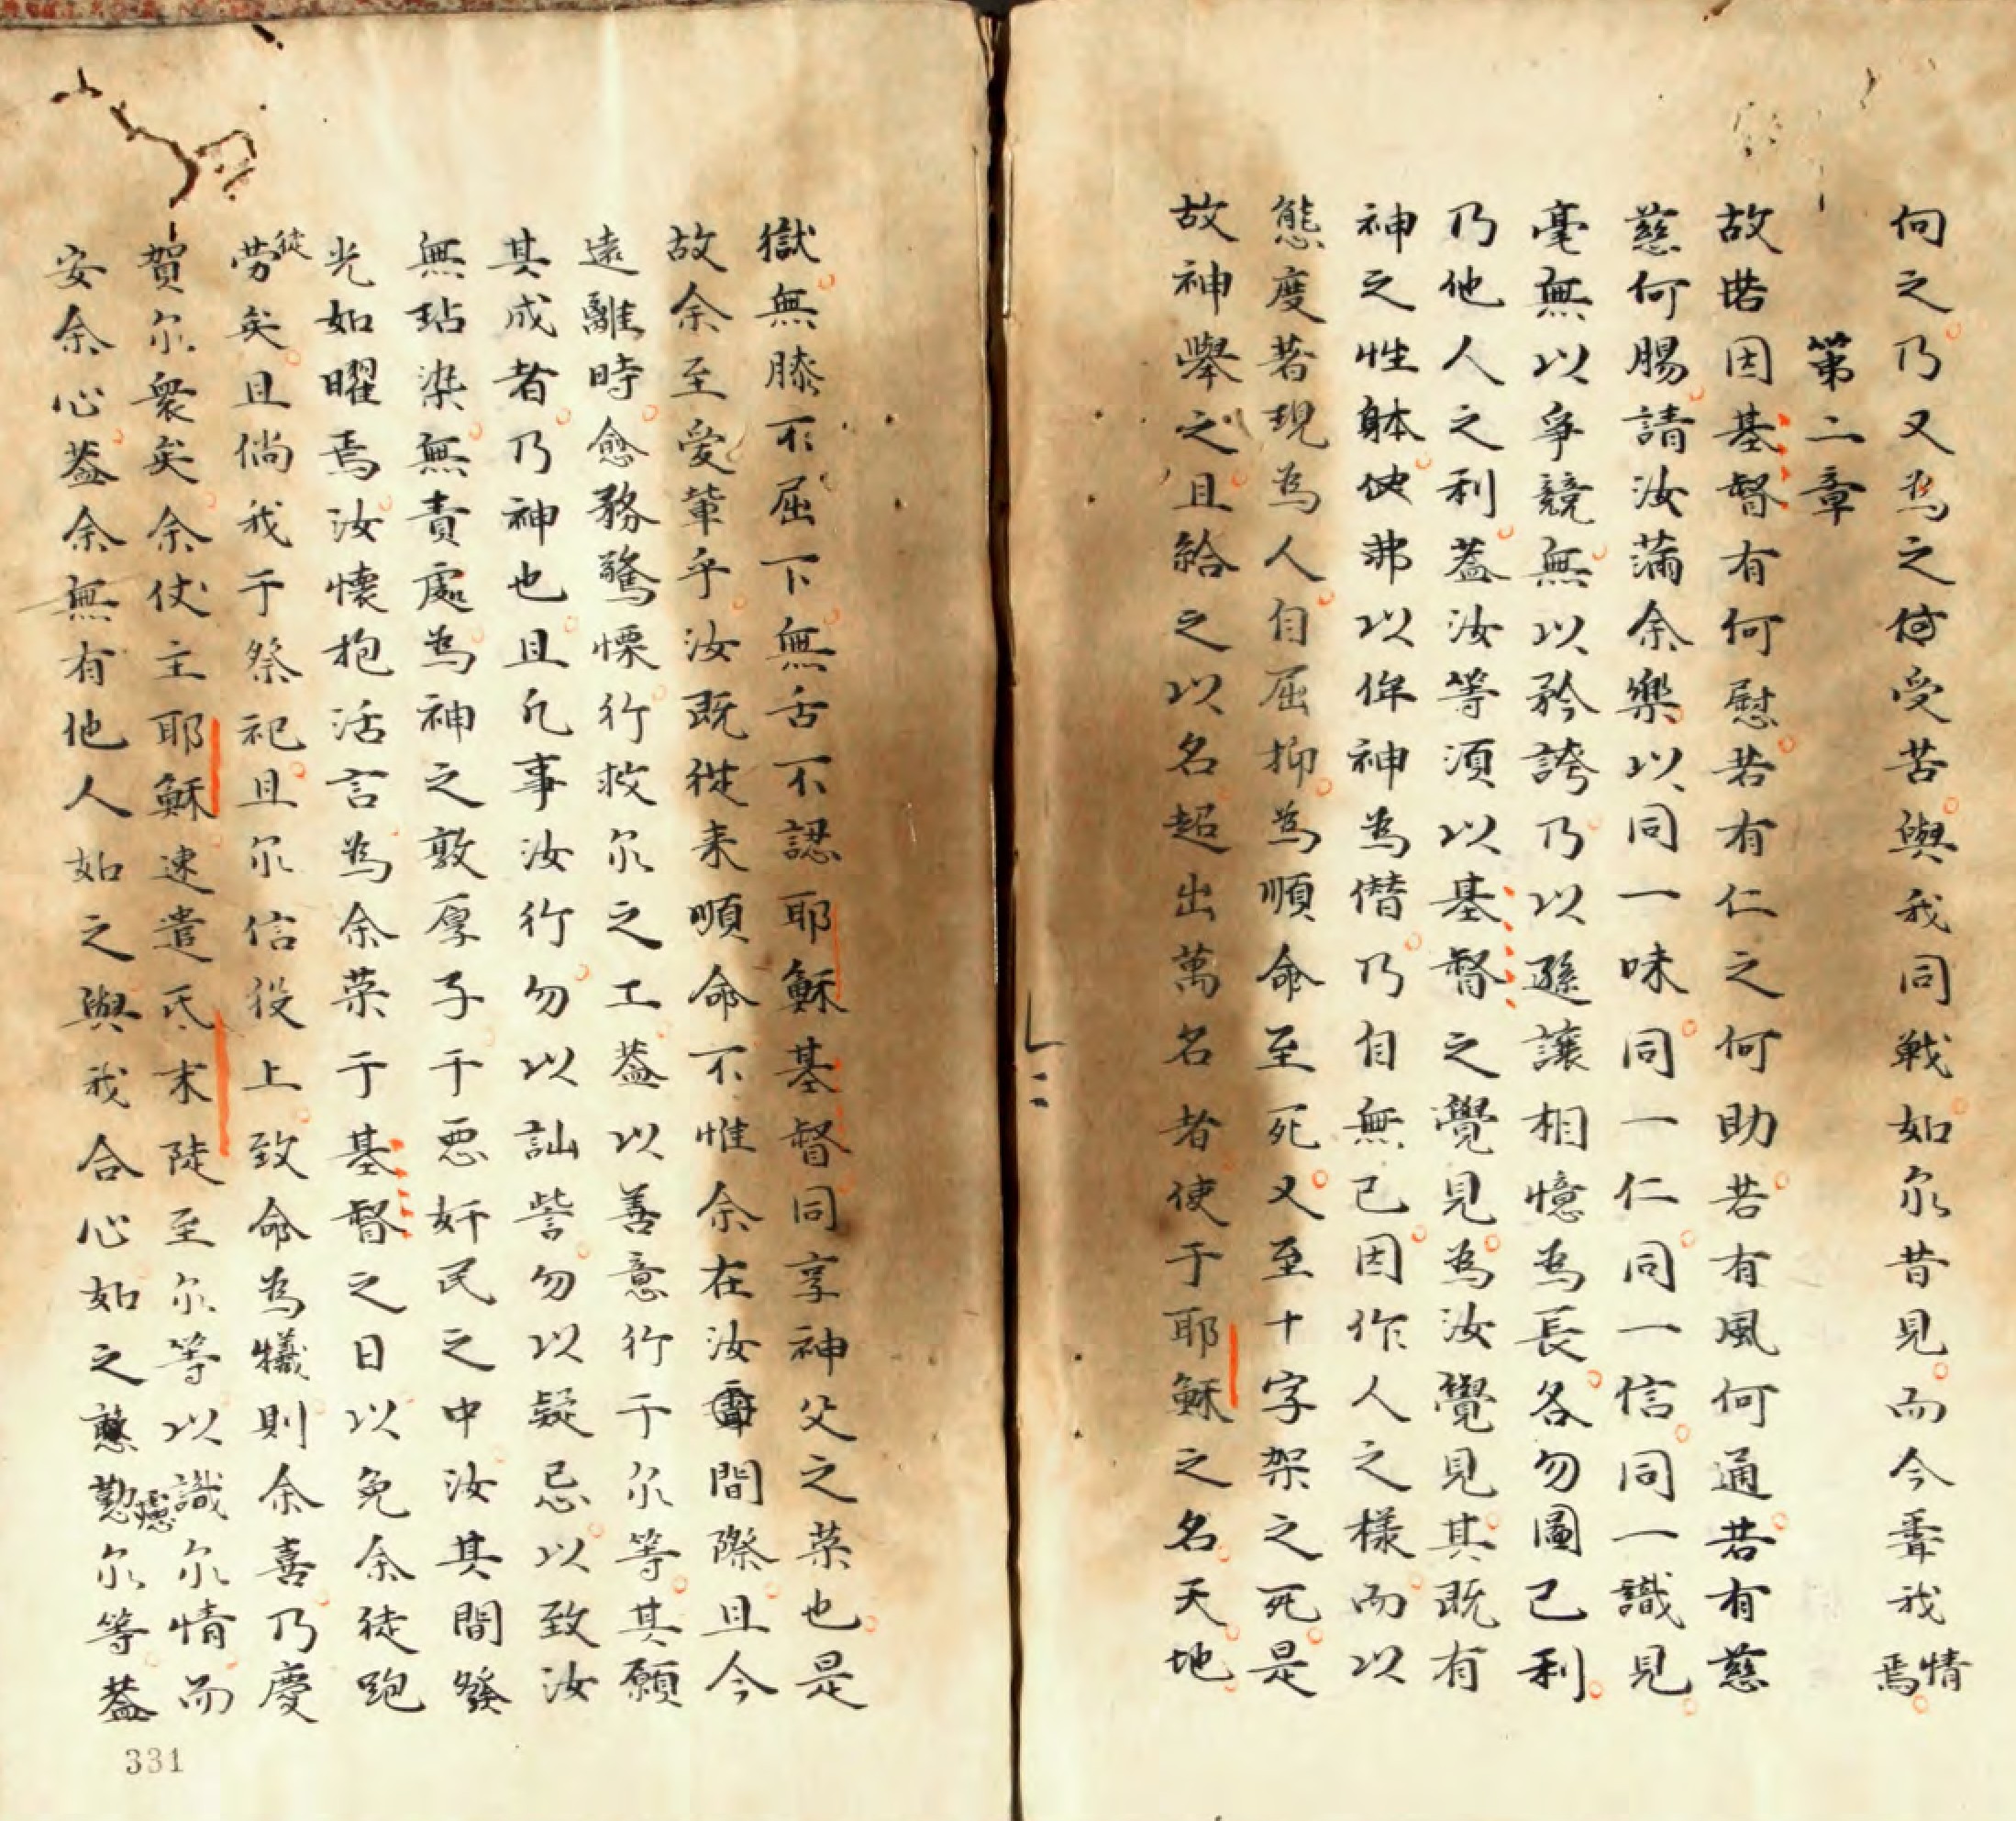 向之乃又為之俻受苦與我同戰如尔昔見而今聽我情焉
第二章
故啱因基督有何慰若有仁之何助若有風何通若有慈
慈何腸請汝滿余樂以同一味同一仁同一信同一識見
毫無以爭競無以矜誇乃以遜讓相憶為長各勿圖己利
乃他人之利蓋汝等須以基督之覺見為汝覺見其既有
神之性躰俠弗以侔神為僣乃自無己因作人之樣而以
態度著現為人自屈抑為順命至死又至十字架之死是
故神舉之且給之以名超出萬名者使于耶穌之名天地
獄無膝不屈下無舌不認耶穌基督同享神父之荣也是
故余至愛輩乎汝既從来順命不惟余在汝間際且今
遠離時愈務驚慄行救尔之工蓋以善意行于尔等其願
其成者乃神也且凡事汝行勿以訕訾勿以疑忌以致汝
無玷染無責處為神之敦厚子于惡奸民之中汝其間發
光如曜焉汝懷抱活言為余荣于基督之日以免余徒跑
徒劳矣且倘我于祭祀且尔信役上致命為犧則余喜乃慶
賀尔衆矣余仗主耶穌速遣氏末陡至尔等以識尔情而
安余心蓋余無有他人如之與我合心如之慇懃憶尔等蓋
331